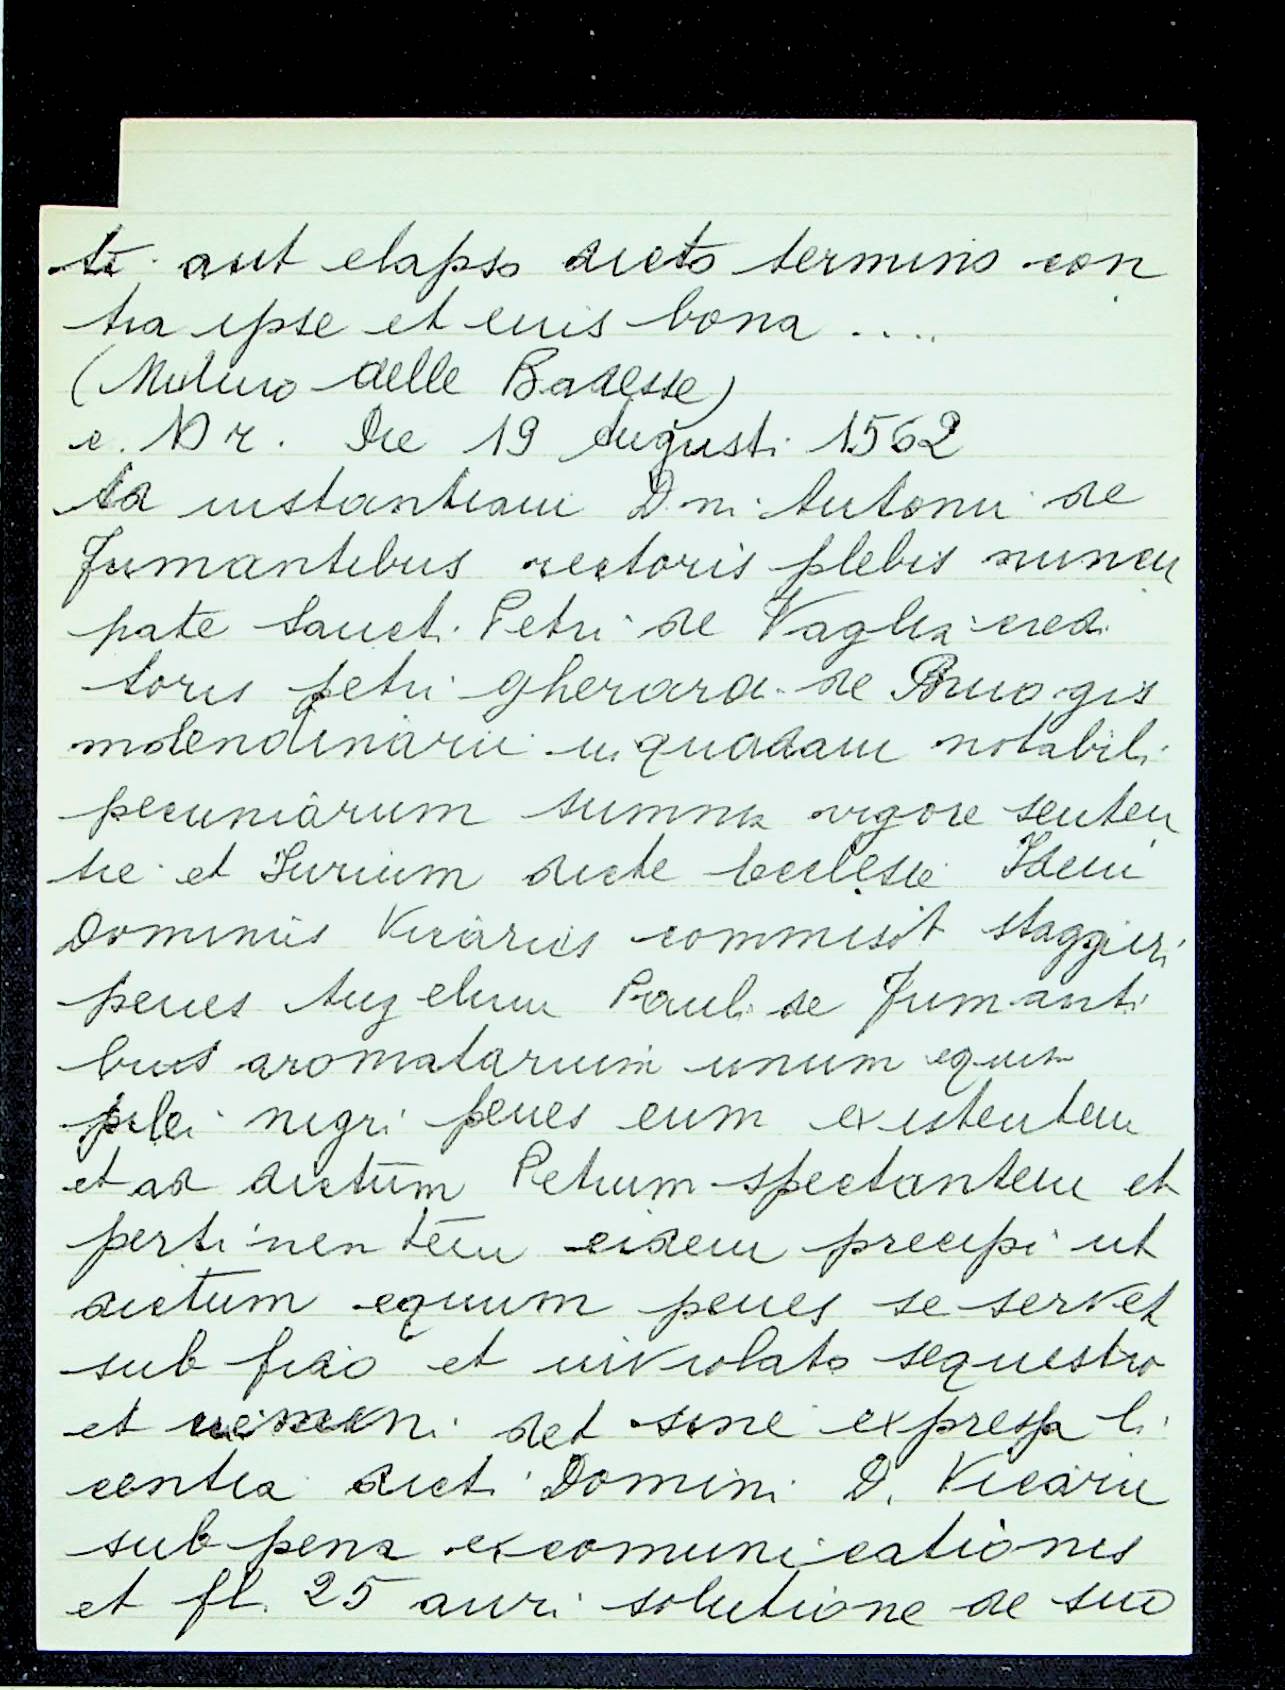 ti aut elapso dicto termino con
tra ipse et eius bona ....
(Mulino delle Badesse)
c. Die 19 Augusti 1562
Ad instantiam Dni Antonii de
Fumantibus rectoris plebis nuncu
pate Sancti Petri de Vaglia credi
toris petri gherardi de
molendinarii in quadam notabili
pecuniarum summa vigore senten
tie et Jurium dicte Ecclesie Idem
Dominus Vicarius commisit staggiri
penes Angelum Pauli de Fumanti
bus aromatarium unum equum
pilei nigri penes eum existentem
et ad dictum Petrum spectantem et
pertinentem eidem precipi ut
dictum equum penes se servet
sub fido et inviolato sequestro
et nemini det sine expressa li
centia dicti Domini D. Vicarii
sub pena excomunicationis
et fl. 25 auri solutione de suo